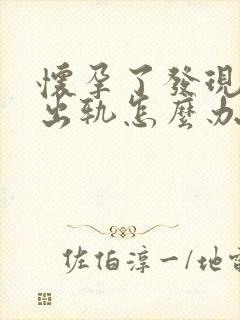 懷孕了發現
出轨怎麼办
佐伯淳一/地